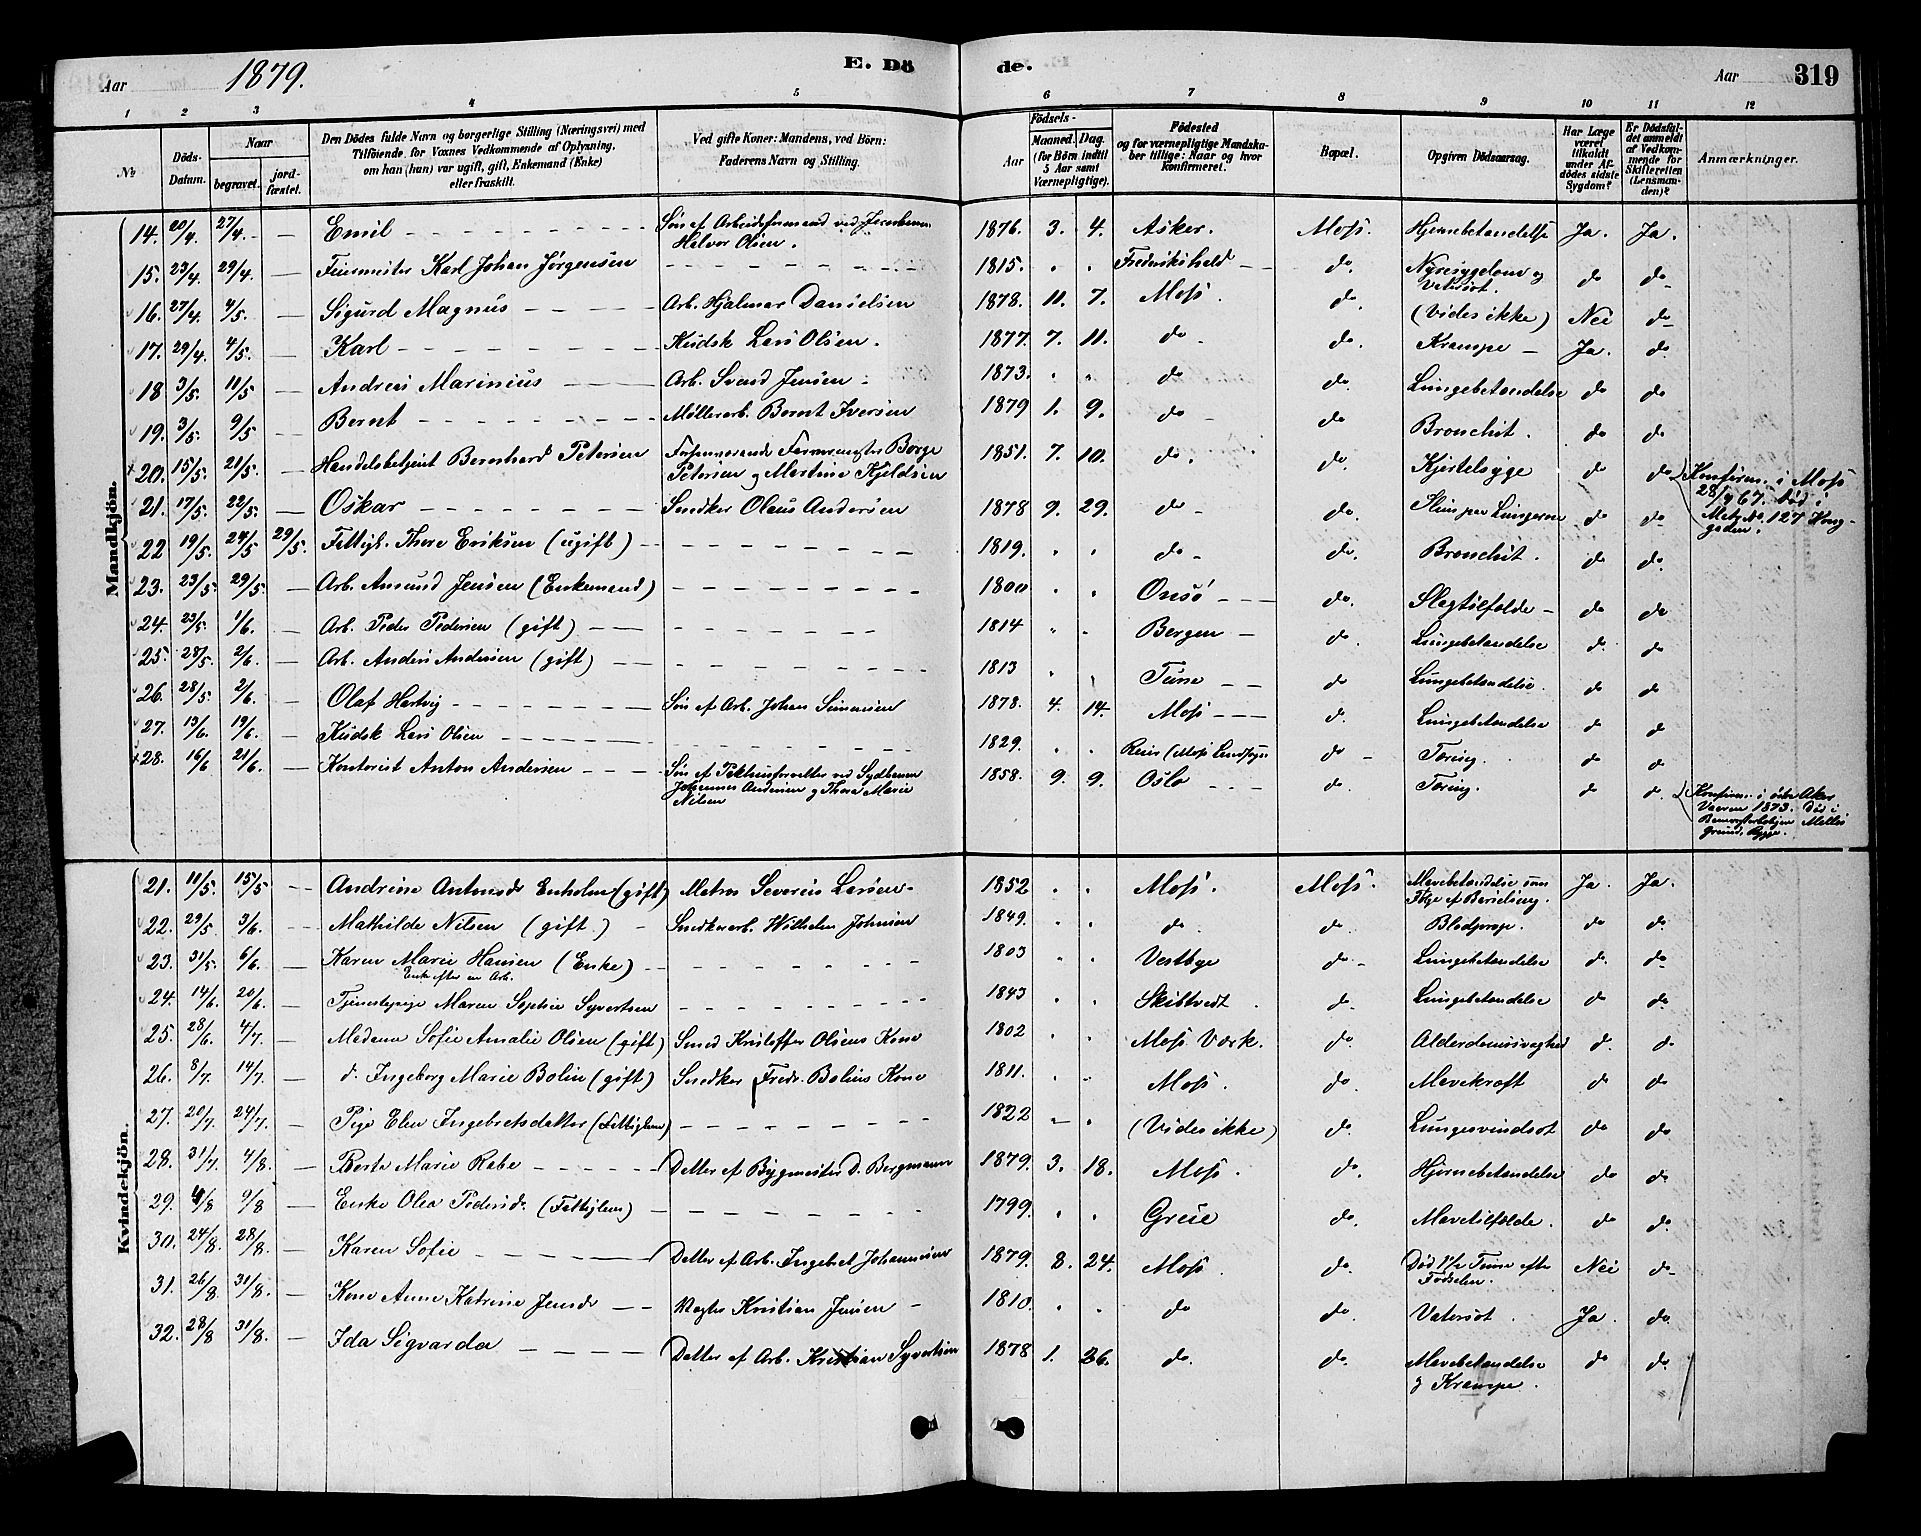 Aar 1879. E. Dö de. Aar 319
1 2 3 4 5 6 7 8 9 10 11 12
No
Döds-Datum.
Naar begravet. jordfæstet.
Den Dödes fulde Navn og borgerlige Stilling (Næringsvei) med Tilföiende for Voxnes Vedkommende af Oplysning, om han (hun) var ugift, gift, Enkemand (Enke) eller fraskilt.
Ved gifte Koner: Mandens, ved Börn: Faderens Navn og Stilling.
Födsels-
Aar Maaned. Dag. (for Börn indtil 5 Aar samt Værnepligtige).
Födested og for værnepligtige Mandskaber tillige: Naar og hvor konfirmeret.
Bopæl.
Opgiven Dödsaarsag.
Har Læge været tilkaldt under Afdödes sidste Sygdom?
Er Dödsfaldet anmeldt af Vedkommende for Skifteretten (Lensmanden)?
Anmærkninger.
Mandkjön.
14. 20/4. 27/4. — Emil Sön af Arbeidsformand ved Jernbanen Halvor Olsen. 1876. 3. 4. Asker. Moss. Hjernebetændelse Ja. Ja.
15. 23/4 29/4. — Feiermester Karl Johan Jörgensen 1815. " " Frederikshald do. Nyresygdom og Vatersot. do do
16. 27/4. 4/5. — Sigurd Magnus Arb. Hjalmar Danielsen 1878. 11. 7. Moss. do. (Vides ikke) Nei do
17. 29/4 4/5. — Karl Kudsk Lars Olsen. 1877. 7. 11. do do. Krampe Ja. do
18 3/5. 11/5. — Andreas Marinius Arb. Svend Jensen 1873. " " do do. Lungebetændelse do do
19. 3/5. 9/5 — Bernt Möllerarb. Bernt Iversen 1879 1. 9. do do Bronchit. do do
20. 15/5. 21/5. — Handelsbetjent Bernhard Petersen Forhenværende Farvermester Borge Petersen og Martine Kjeldsen 1851. 7. 10. do. do. Kjertelsyge do do Konfirm. i Moss 28/4 67. Död i Matr. No. 127 Kongsgaden.
21. 17/5. 22/5. — Oskar Snedker Olaus Andersen 1878 9. 29. do do. Slim paa Lungerne do do
22 19/5. 24/5 29/5. Fattigl. Thore Eriksen (ugift) 1819. " " do do. Bronchit. do do.
23. 23/5. 29/5. — Arb. Amund Jensen (Enkemand) 1800 " " Onsö do. Slagtilfælde do do
24. 23/5. 1/6. — Arb. Peder Pedersen (gift) 1814 " " Bergen do. Lungebetændelse do. do
25. 28/5. 2/6. — Arb. Anders Andersen (gift) 1813 " " Tune do Lungebetændelse. do do
26. 28/5. 2/6. — Olaf Hartvig Sön af Arb. Johan Simensen 1878. 4. 14. Moss d. Lungebetændelse d do
27. 13/6. 19/6. — Kudsk Lars Olsen 1829. " " Reier (Moss Landsogn do Tæring. do d
28. 16/6 21/6. — Kontorist Anton Andersen Sön af Pakhusforvalter ved Sydbanen Johannes Andersen og Thora Marie Nilsen 1858. 9. 9. Oslo do. Tæring. do d. Konfirm. i östre Aker Vaaren 1873. Död i Banevogterboligen Melløs Grund, Rygge.
Kvindekjön.
21. 11/5. 15/5 — Andrine Antonsdr Enholm (gift) Matros Severin Larsen 1852 " " Moss. Moss. Mavebetændelse som Fölge af Barselseng. Ja. Ja.
22. 29/5 3/6. — Mathilde Nilsen (gift.) Snedkerarb. Wilhelm Johnsen 1849. " " do. do. Blodprop. do do.
23. 31/5. 6/6. — Karen Marie Hansen (Enke) Enke efter en Arb. 1803 " " Vestbye do Lungebetændelse do. do.
24. 14/6. 20/6. — Tjenestepige Maren Sophie Syvertsen 1843 " " Skibtvedt. do. Lungebetændelse do do
25. 28/6. 4/7. — Madame Sofie Amalie Olsen (gift) Smed Kristoffer Olsens Kone 1802 " " Moss Værk. do. Alderdomssvaghed d. d.
26. 8/7. 14/7. — d. Ingeborg Marie Bolin (gift) Snedker Fredr. Bolins Kone 1811. " " Moss. do. Mavekræft do do
27. 20/7. 24/7. — Pige Elen Ingebretsdatter (Fattiglem) 1822 — " (Vides ikke) do. Lungesvindsot do do
28. 31/7. 4/8. — Berte Marie Rabe Datter af Bygmester D. Bergmann 1879. 3. 18. Moss. do. Hjernebetændelse do do
29. 4/8 9/8 — Enke Olea Pedersd. (Fattiglem) 1799. " " Grue do. Mavetilfælde. do do.
30. 24/8. 28/8. — Karen Sofie Datter af Arb. Ingebret Johannesen 1879. 8. 24. Moss. do. Död 1 1/2 Time efter Födselen. Nei do
31. 26/8. 31/8. — Kone Anne Katrine Jensdr Vagter Kristian Jensen 1810. " " do do. Vatersot. Ja. do
32. 28/8 31/8. — Ida Sigvarda Datter af Arb. Kristian Syvertsen 1878 1. 26. do. do. Mavebetændelse og Krampe. do do.